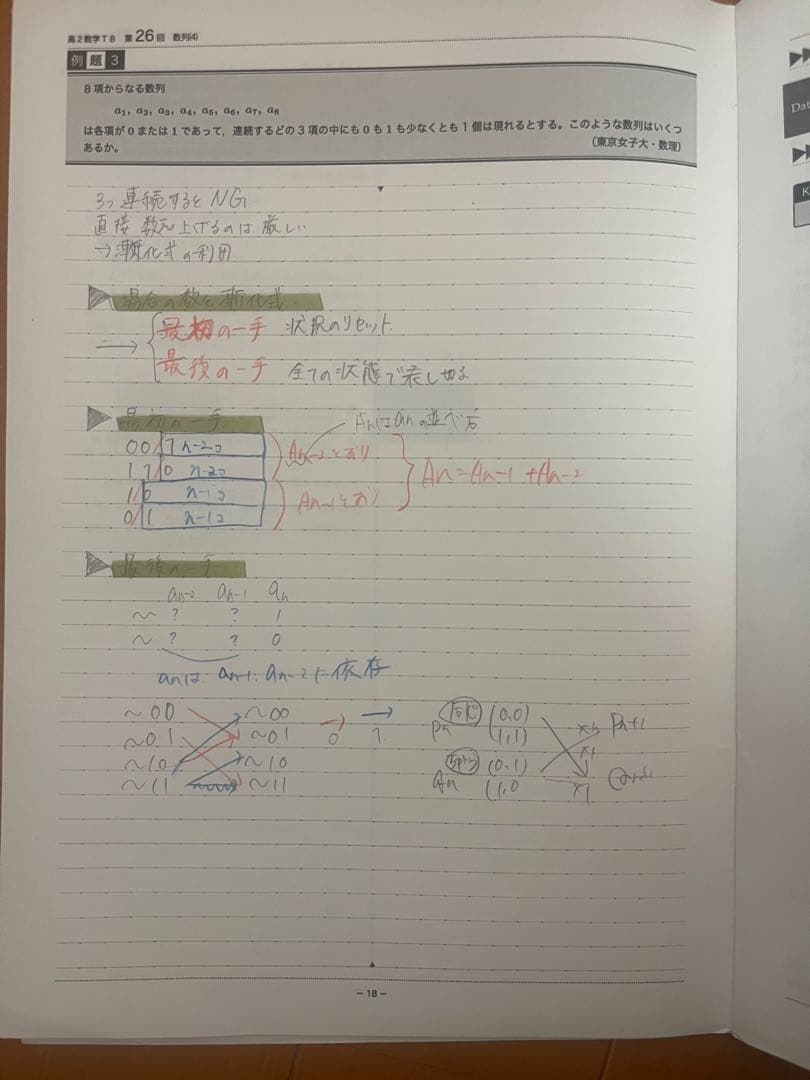 高2数学TB 第26回 数列(4)
例題3
8項からなる数列
a₁, a₂, a₃, a₄, a₅, a₆, a₇, a₈
は各項が0または1であって，連続するどの3項の中にも0も1も少なくとも1個は現れるとする。このような数列はいくつ
あるか。 (東京女子大・数理)
3つ連続するとNG
直接数え上げるのは厳しい
→漸化式の利用
場合の数と漸化式
→ 最初の一手 状況のリセット
最後の一手 全ての状態で表し切る
最初の一手 Anはanの並べ方
00/1 n-2コ
11/0 n-2コ
An-2とおり
1/0 n-1コ
0/1 n-1コ
An-1とおり
An=An-1+An-2
最後の一手
an-2 an-1 an
〜 ? ? 1
〜 ? ? 0
anはan-1, an-2に依存
〜00 〜00
〜01 〜01
〜10 〜10
〜11 〜11
→ 0 → 1
Pn 同じ (0,0)
(1,1)
×1 Pn+1
×1
(0,1)
(1,0
×1
Dat
K
－18－